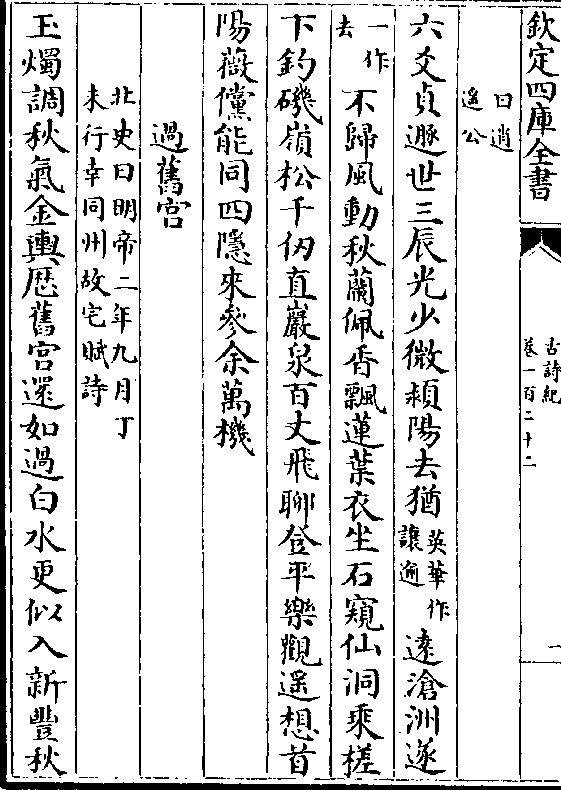 欽定四庫全書
古詩紀
卷一百二十二
一
曰逍
遙公
六爻貞遯世三辰光少微頴陽去猶英華作讓逾遠滄洲遂
一作去不歸風動秋蘭佩香飄蓮葉衣坐石窺仙洞乘槎
下釣磯嶺松千仞直巖泉百丈飛聊登平樂觀遥想首
陽薇儻能同四隱來參余萬機
過舊宫
北史曰明帝二年九月丁
未行幸同州故宅賦詩
玉燭調秋氣金輿歴舊宫還如過白水更似入新豐秋